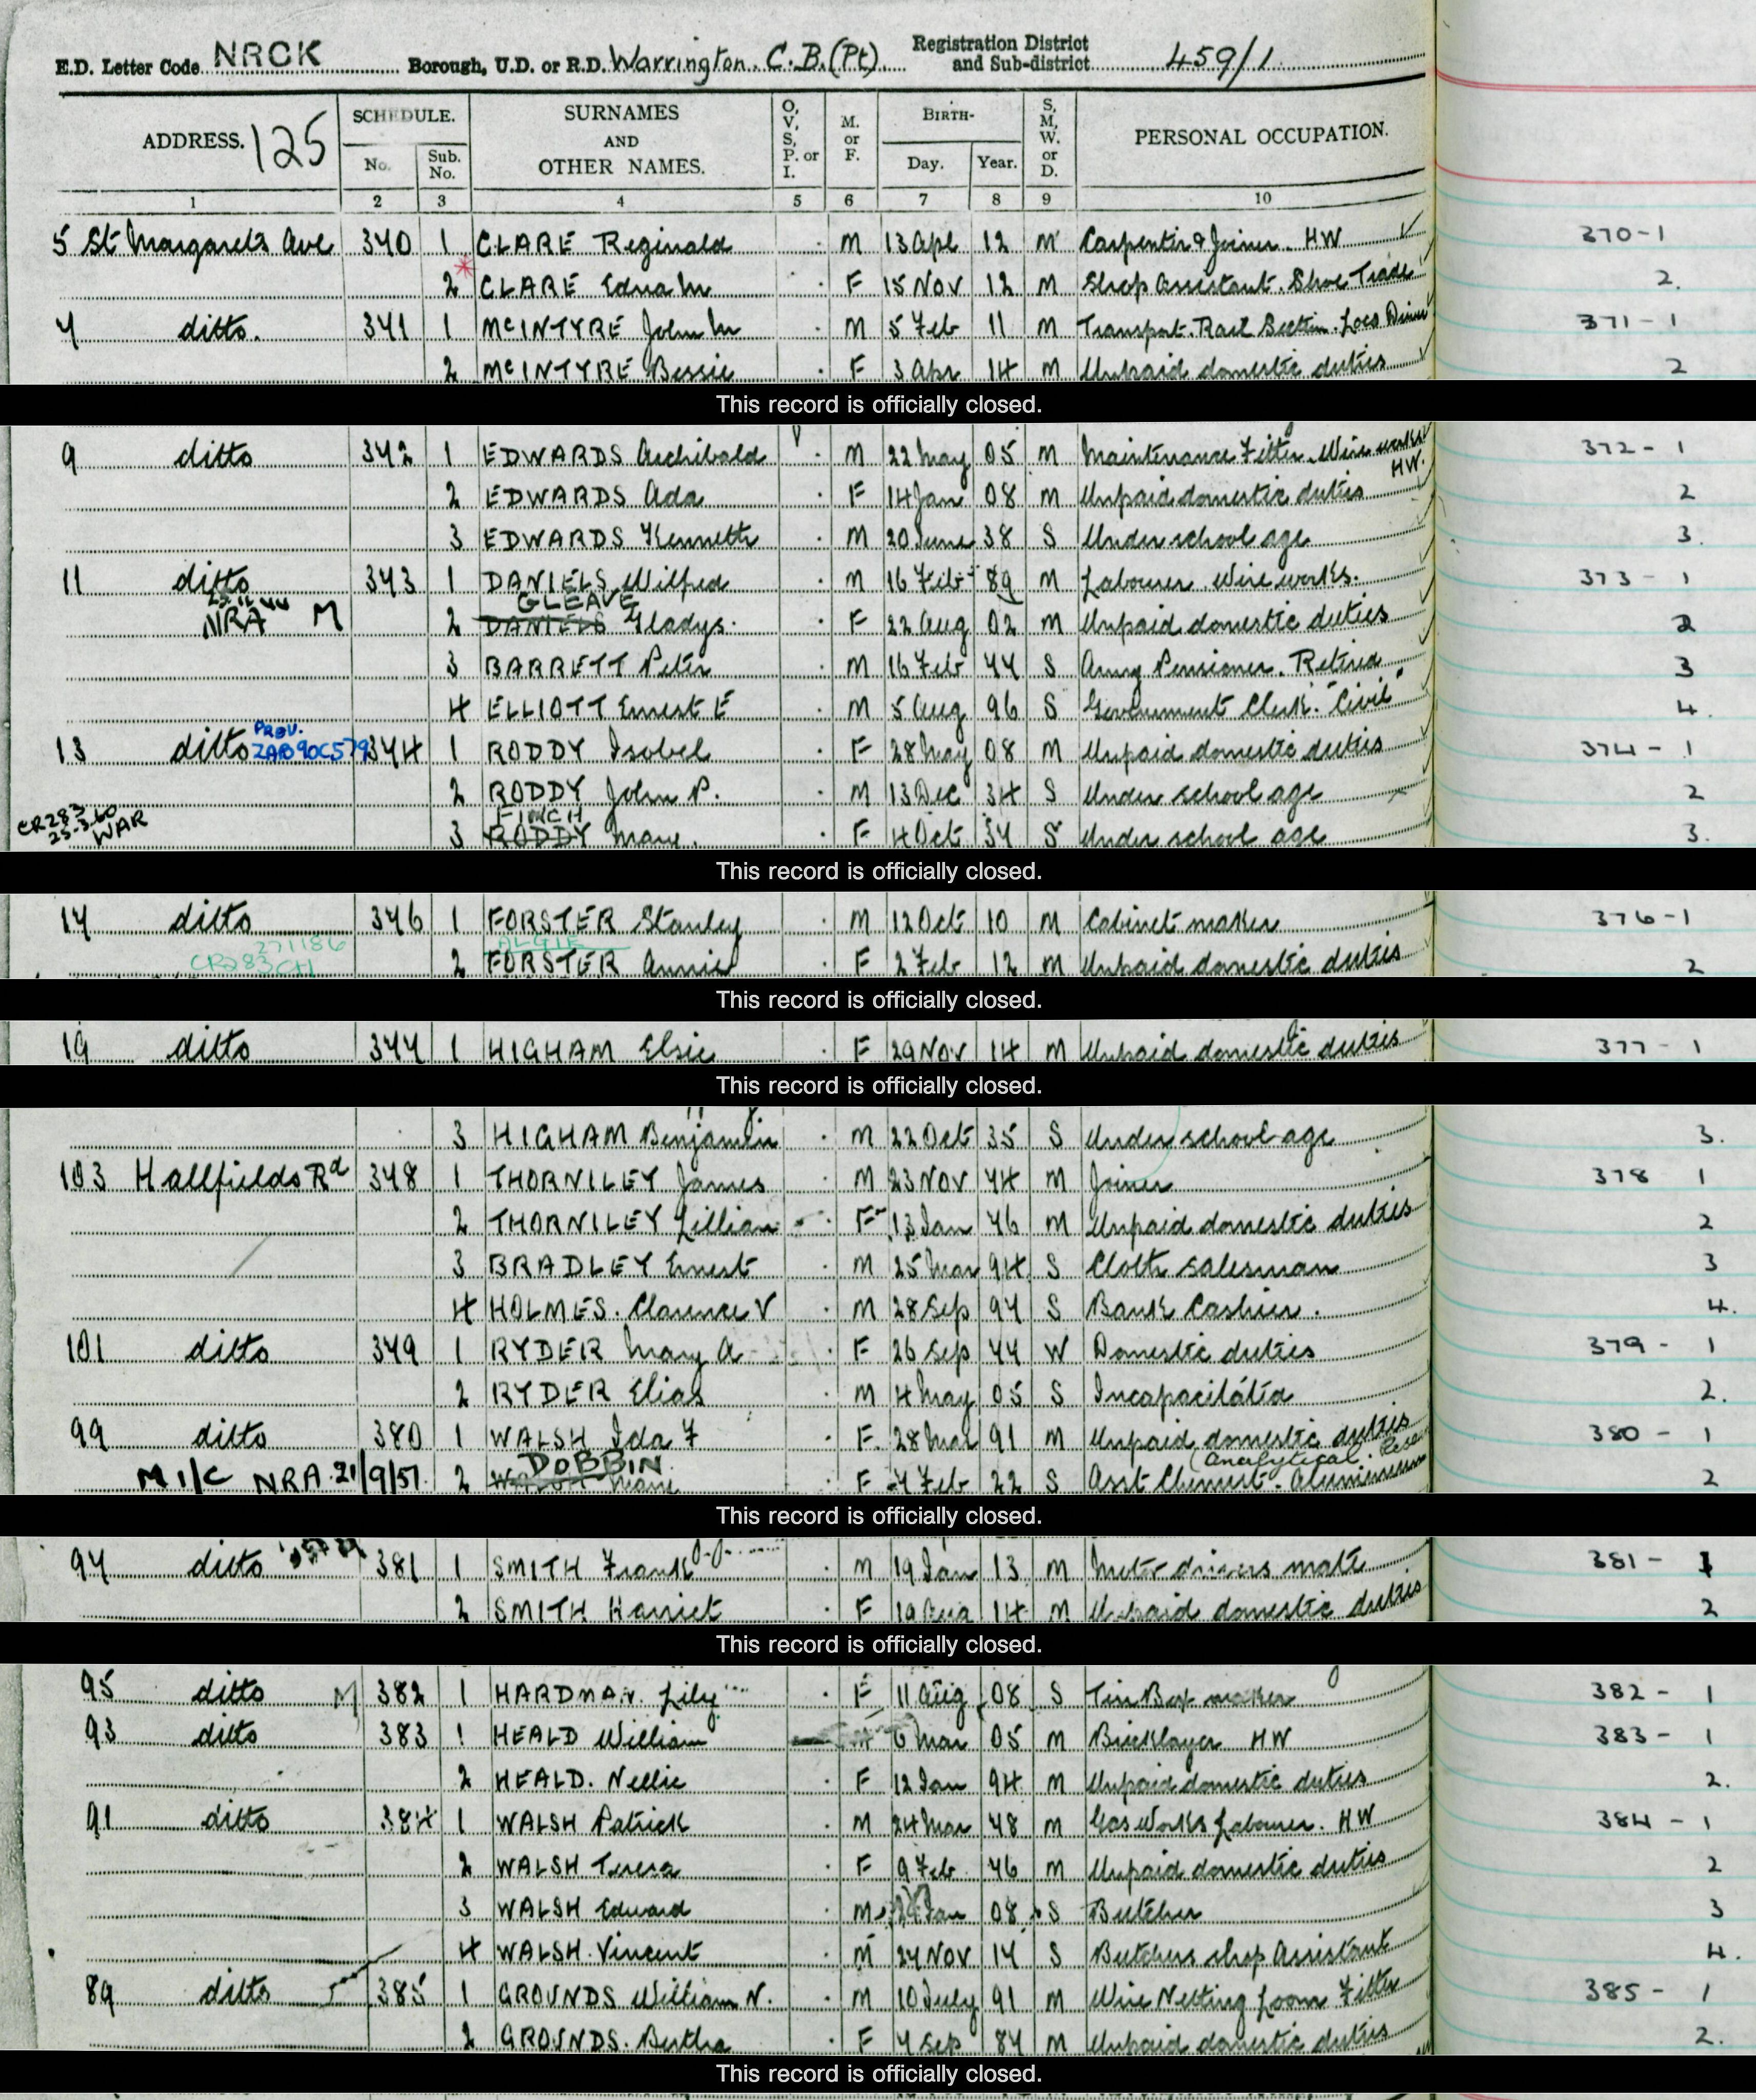 E.D. Letter Code NRCK Borough, U.D. or R.D. Warrington. C.B.(Pt) Registration District and Sub-district 459/1
ADDRESS. 125 SCHEDULE. No. Sub. No. SURNAMES AND OTHER NAMES. O, V, S, P. or I. M. or F. BIRTH- Day. Year. S, M, W. or D. PERSONAL OCCUPATION.
1 2 3 4 5 6 7 8 9 10
5 St Margarets Ave 340 1 CLARE Reginald M 13 Apl 12 M Carpenter & Joiner. HW 370-1
2 CLARE Edna M F 15 Nov 12 M Shop Assistant. Shoe Trade 2.
ditto. 341 1 McINTYRE John M M 5 Feb 11 M Transport. Rail Section. Loco Driver 371-1
2 McINTYRE Bessie F 3 Apr 14 M Unpaid domestic duties 2
This record is officially closed.
9 ditto 342 1 EDWARDS Archibald M 22 May 05 M Maintenance Fitter. Wire works HW. 372-1
2 EDWARDS Ada F 14 Jan 08 M Unpaid domestic duties 2
3 EDWARDS Kenneth M 20 June 38 S Under school age 3.
11 ditto 343 1 DANIELS Wilfred M 16 Feb 89 M Labourer Wire works. 373-1
GLEAVE
NRA M 2 DANIELS Gladys. F 22 Aug 02 M Unpaid domestic duties 2
3 BARRETT Peter M 16 Feb 77 S Army Pensioner. Retired 3
4 ELLIOTT Ernest E M 5 Aug 96 S Government Clerk. "Civil" 4.
PROV.
13 ditto ZAB90C579 344 1 RODDY Isobel F 28 May 08 M Unpaid domestic duties 374-1
2 RODDY John P. M 13 Dec 34 S Under school age 2
FINCH
CR283 25-3-60 WAR 3 RODDY Mary. F 4 Oct 37 S Under school age 3.
This record is officially closed.
17 ditto 346 1 FORSTER Stanley M 12 Oct 10 M Cabinet maker 376-1
271186 ALGIE
CR283CH 2 FORSTER Annie F 2 Feb 12 M Unpaid domestic duties 2
This record is officially closed.
19 ditto 347 1 HIGHAM Elsie F 29 Nov 14 M Unpaid domestic duties 377-1
This record is officially closed.
3 HIGHAM Benjamin M 22 Oct 35 S Under school age 3.
103 Hallfields Rd 348 1 THORNILEY James M 23 Nov 74 M Joiner 378 1
2 THORNILEY Lillian F 13 Jan 76 M Unpaid domestic duties 2
3 BRADLEY Ernest M 25 Mar 94 S Cloth salesman 3
4 HOLMES. Clarence V M 28 Sep 97 S Bank Cashier. 4.
101 ditto 349 1 RYDER Mary A F 26 Sep 77 W Domestic duties 379-1
2 RYDER Elias M 4 May 05 S Incapacitated 2.
99 ditto 380 1 WALSH Ida F F. 28 Mar 91 M Unpaid domestic duties 380-1
DOBBIN (Analytical)
M 1/C NRA 21/9/57. 2 WALSH Mary F 7 Feb 22 S Asst Chemist. Aluminium 2
This record is officially closed.
97 ditto 381 1 SMITH Frank M 19 Jan 13 M Motor drivers mate 381-1
2 SMITH Harriet F 19 Aug 14 M Unpaid domestic duties 2
This record is officially closed.
95 ditto M 382 1 HARDMAN. Lily F 11 Aug 08 S Tin Box maker 382-1
93 ditto 383 1 HEALD William 6 Mar 05 M Bricklayer HW 383-1
2 HEALD. Nellie F 12 Jan 94 M Unpaid domestic duties 2.
91 ditto 384 1 WALSH Patrick M 24 Mar 78 M Gas Works Labourer. HW 384-1
2 WALSH Teresa F 9 Feb. 76 M Unpaid domestic duties 2
3 WALSH Edward M Jan 08 S Butcher 3
4 WALSH. Vincent M 27 Nov 17 S Butchers shop Assistant 4.
89 ditto 385 1 GROUNDS William N. M 10 July 91 M Wire Netting Loom Fitter 385-1
2 GROUNDS. Bertha F 7 Sep 87 M Unpaid domestic duties 2.
This record is officially closed.